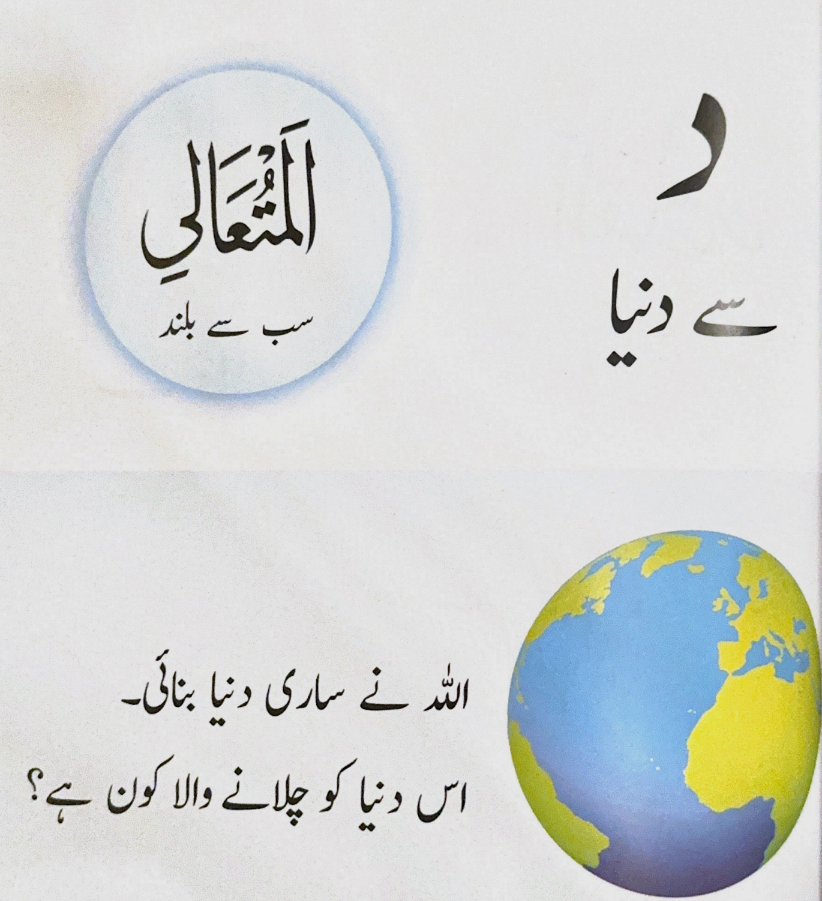 د
سے دنیا
اَلْمُتَعَالِي
سب سے بلند
اللہ نے ساری دنیا بنائی۔
اس دنیا کو چلانے والا کون ہے؟